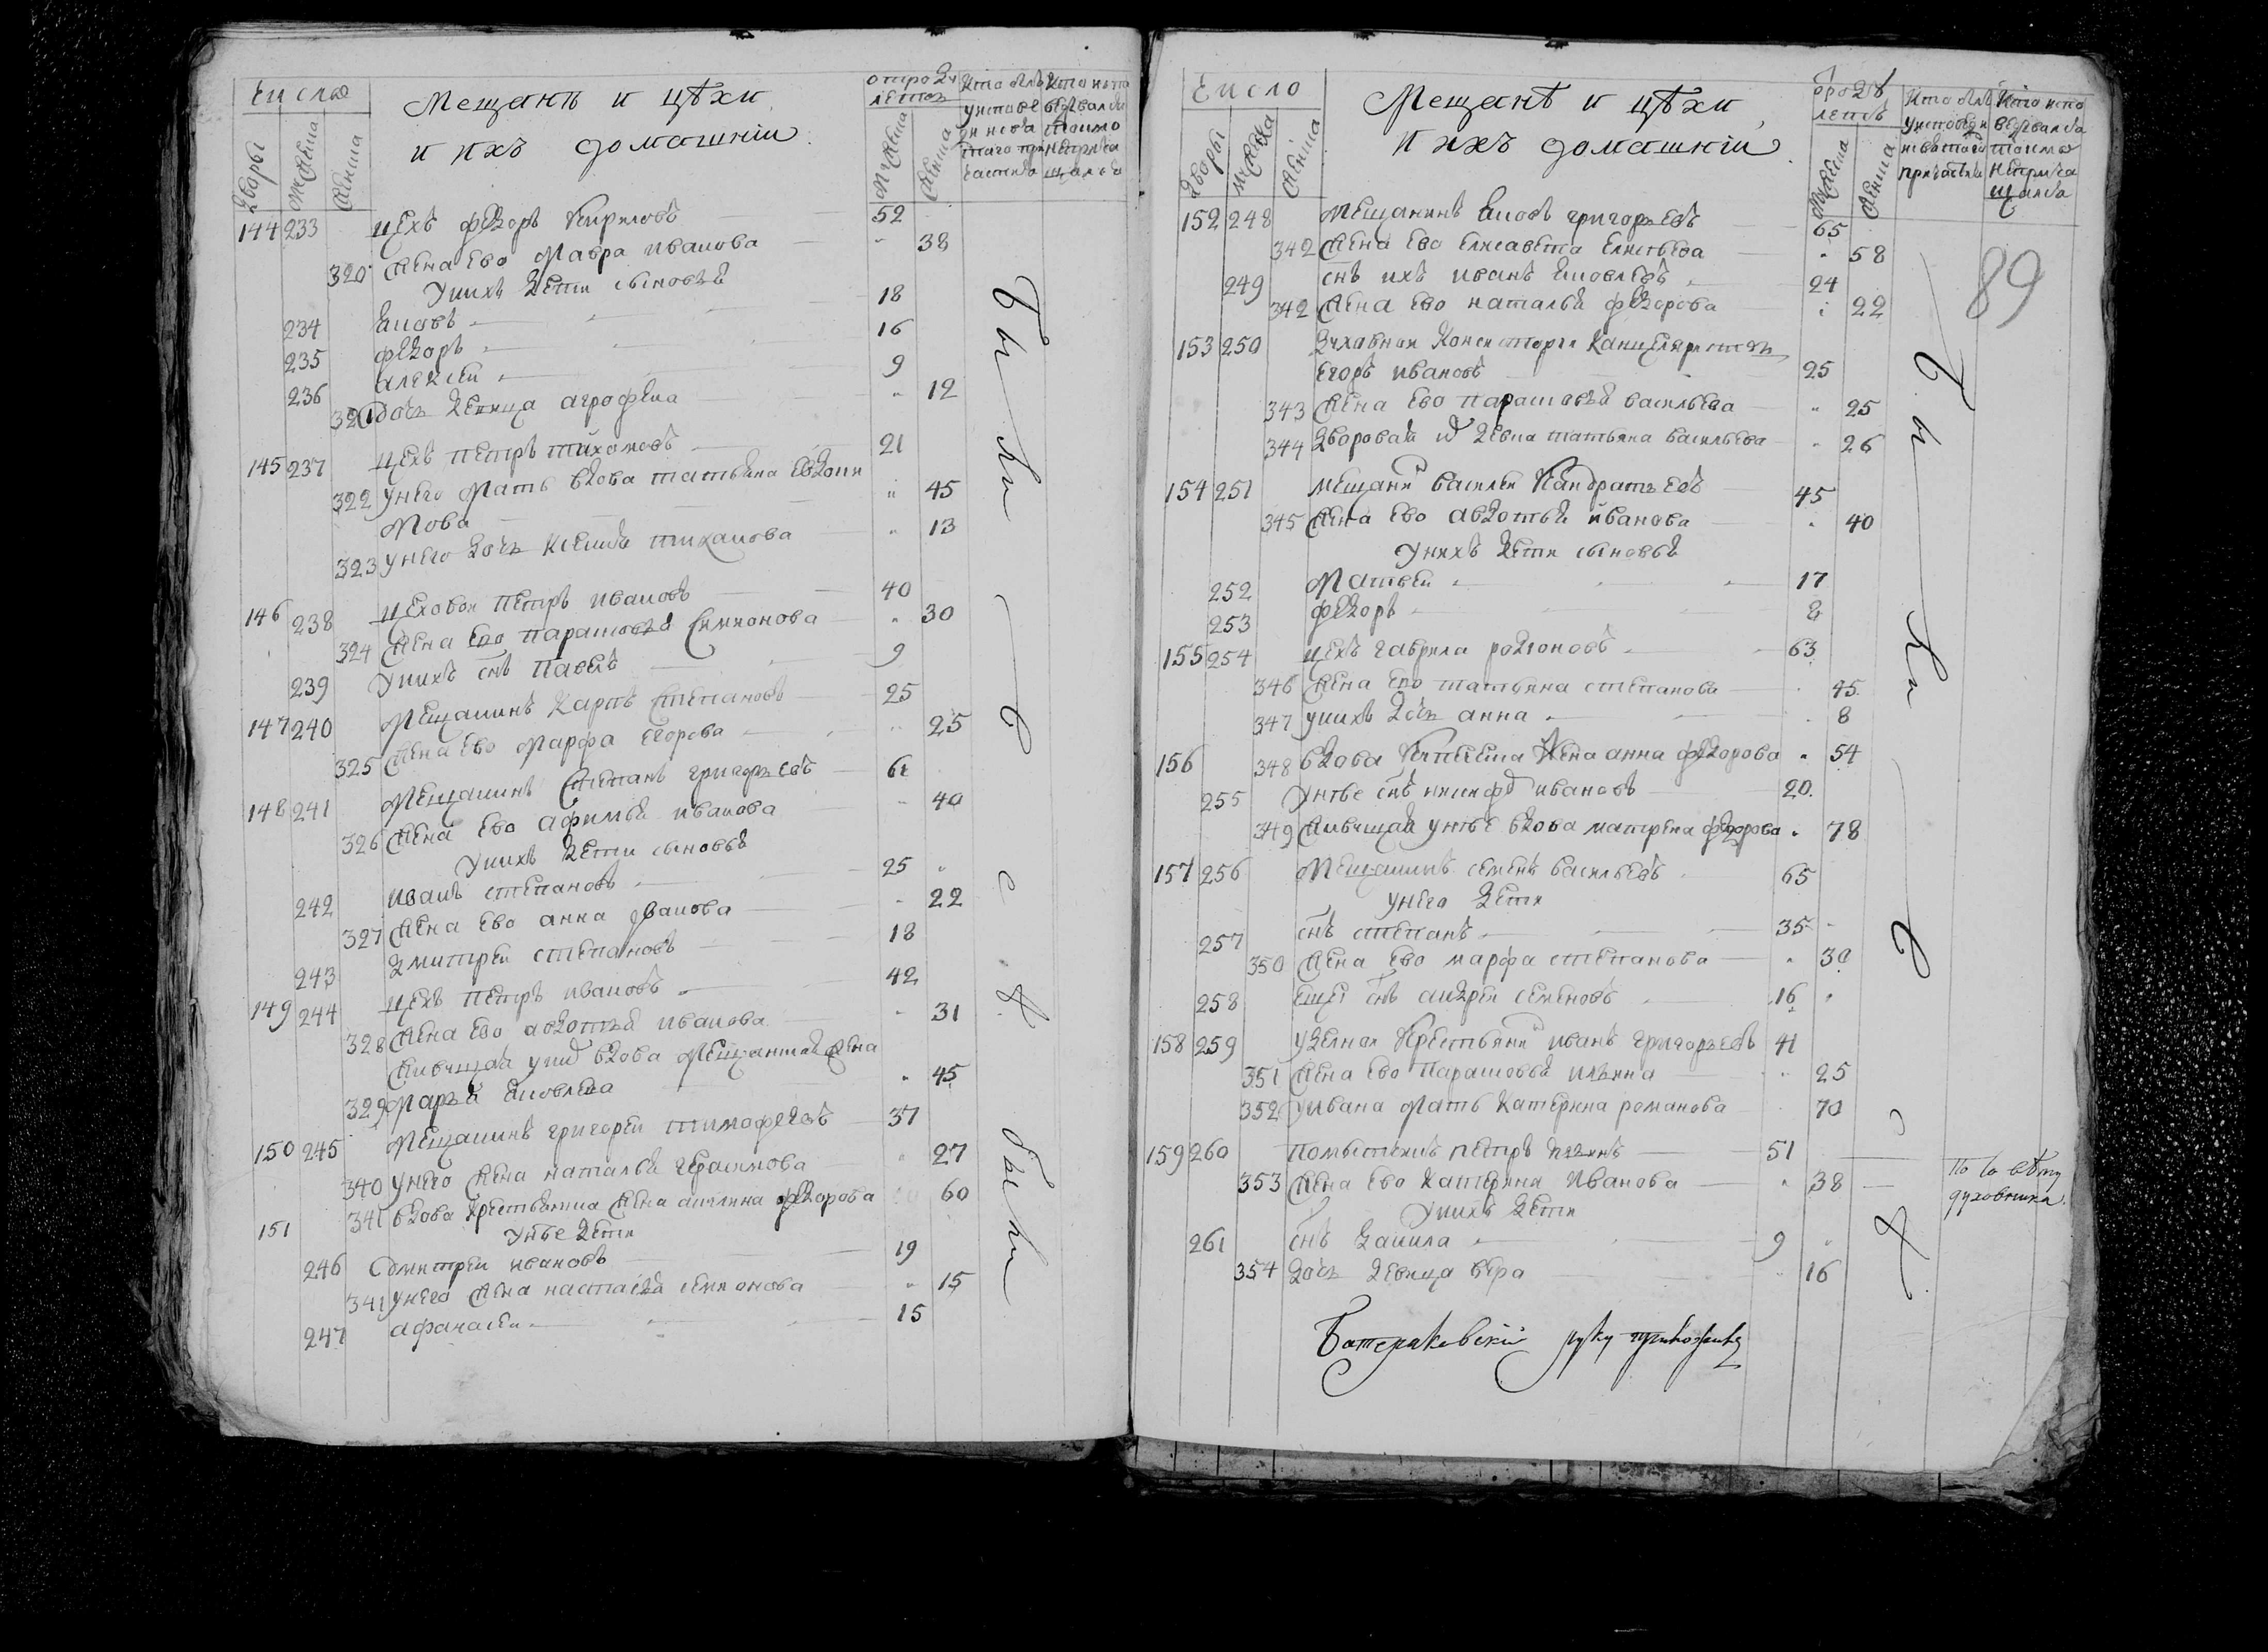 Число
Мещанѣ и цѣхи
и ихъ домашнїи
отроду
летъ
Дворы
Мужеска
Женска
144 233 цехъ федоръ Кириловъ 52
320 жена Ево Мавра иванова 38
Унихъ дети сыновья
234 Яковъ 18
235 федоръ 16
236 алексеи 9
321 дочь девица агрофена 12
145 237 цехъ петръ тихоновъ 21
322 унего Мать вдова татьяна Евдоки
Мова 45
323 унего дочь Ксенья тиханова 13
146 238 цеховои петръ ивановъ 40
324 жена Ево парасковья Симионова 30
239 Унихъ снъ павелъ 9
147 240 Мещанинъ Карпъ Степановъ 25
325 жена Ево Марфа Егорова 25
148 241 Мещанинъ Степанъ григорьевъ 61
326 жена Ево афимья иванова 40
Унихъ дети сыновья
242 иванъ степановъ 25
327 жена Ево анна иванова 22
243 дмитреи степановъ 18
149 244 цехъ петръ ивановъ 42
328 жена Ево авдотья иванова 31
живущая унихъ вдова Мещанская жена
329 Марья Яковлева 45
150 245 Мещанинъ григореи тимофеевъ 37
340 унего жена наталья герасимова 27
151 341 вдова крестьянка жена акилина федорова 60
Унѣе дети
246 дмитреи ивановъ 19
341 унего жена настасья симионова 15
247 афанасеи 15
Были
въ
с.
т.
были
Число
Мещанѣ и цѣхи
и ихъ домашнїи
отродѣ
летъ
Дворы
мужеска
Женска
89
152 248 Мещанинъ Яковъ григорьевъ 65
342 жена Ево Елисавета Елисѣева 58
249 снъ ихъ иванъ Яковлевъ 24
342 жена Ево наталья федорова 22
153 250 духовнои Консистории Канцеляристъ
Егоръ ивановъ 25
343 жена Ево парасковья васильева 25
344 дворовая девка татьяна васильева 26
154 251 мещанинъ василеи Кандратьевъ 45
345 жена Ево авдотья иванова 40
Унихъ дети сыновья
252 Матвеи 17
253 федоръ 8
155 254 цехъ гаврила родионовъ 63
346 жена Ево татьяна степанова 45
347 унихъ дочь анна 8
156 348 вдова Купецкая жена анна федорова 54
255 Унѣе снъ никифоръ ивановъ 20
349 живущая унѣе вдова матрена федорова 78
157 256 Мещанинъ семенъ васильевъ 65
унего дети
257 снъ степанъ 35
350 жена Ево марфа степанова 30
258 Еще снъ андреи семеновъ 16
158 259 уделнои Крестьянинъ иванъ григорьевъ 41
351 жена Ево Парасковья ильина 25
352 уивана Мать Катерина романова 70
159 260 помѣщикъ петръ 51
353 жена Ево Катерина Иванова 38
По совѣту
духовника
Унихъ дети
261 снъ данила 9
354 дочь девица вера 16
Были
въ
с
т
руку приложилъ